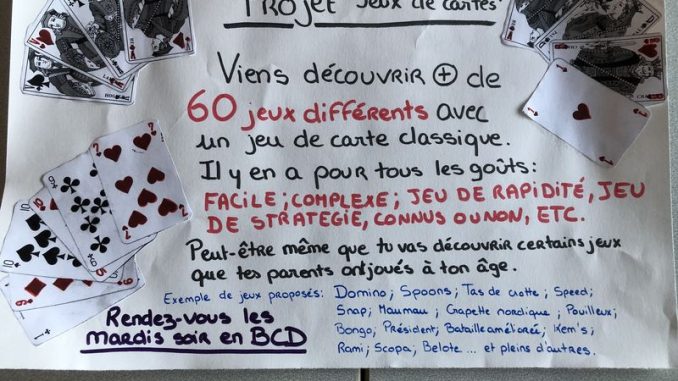 Projet Jeux de cartes
Viens découvrir + de
60 jeux différents avec
un jeu de carte classique.
Il y en a pour tous les goûts:
FACILE; COMPLEXE; JEU DE RAPIDITÉ, JEU
DE STRATEGIE, CONNUS OU NON, ETC.
Peut-être même que tu vas découvrir certains jeux
que tes parents ont joués à ton âge.
Exemple de jeux proposés: Domino; Spoons; Tas de crotte; Speed;
Snap; Maumau; Crapette nordique; Pouilleux;
Bongo, Président; Bataille améliorée; Kem's;
Rami; Scopa; Belote ... et pleins d'autres.
Rendez-vous les
mardis soir en BCD